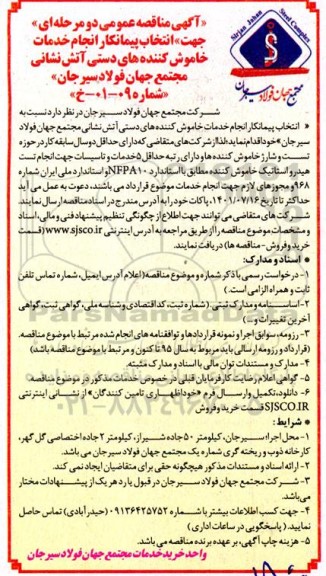 Sirjan Jahan
Steel Complex
مجتمع جهان فولاد سیرجان
«آگهی مناقصه عمومی دو مرحله ای»
جهت «انتخاب پیمانکار انجام خدمات
خاموش کننده های دستی آتش نشانی
مجتمع جهان فولاد سیرجان»
«شماره ۰۹-۰۱-خ»
شرکت مجتمع جهان فولاد سیرجان در نظر دارد نسبت به
« انتخاب پیمانکار انجام خدمات خاموش کننده های دستی آتش نشانی مجتمع جهان فولاد
سیرجان » خود اقدام نماید، لذا از شرکت های متقاضی که دارای حداقل دو سال سابقه کار در حوزه
تست و شارژ خاموش کننده ها و دارای رتبه حداقل ۵ خدمات و تاسیسات جهت انجام تست
هیدرو استاتیک خاموش کننده مطابق با استاندارد NFPA10 و استاندارد ملی ایران شماره
۹۶۸ و مجوزهای لازم جهت انجام خدمات موضوع قرارداد می باشند، دعوت به عمل می آید
حداکثر تا تاریخ ۱۴۰۱/۰۷/۱۶، پاکات خود را به آدرس مندرج در اسناد مناقصه ارسال نمایند.
شرکت های متقاضی می توانند جهت اطلاع از چگونگی تنظیم پیشنهاد فنی و مالی، اسناد
و مشخصات موضوع مناقصه را از طریق مراجعه به آدرس اینترنتی www.sjsco.ir (قسمت
خرید و فروش-مناقصه ها) دریافت نمایند.
اسناد و مدارک:
۱- درخواست رسمی با ذکر شماره و موضوع مناقصه (اعلام آدرس ایمیل، شماره تماس تلفن
ثابت و همراه الزامی است.)
۲- اساسنامه و مدارک ثبتی (شماره ثبت، کد اقتصادی و شناسه ملی، گواهی ثبت، گواهی
آخرین تغییرات و...)
۳- رزومه، سوابق اجرا و نمونه قراردادها و توافقنامه های انجام شده مرتبط با موضوع مناقصه.
(قرارداد و رزومه ارسالی باید مربوط به سال ۹۵ تاکنون و مرتبط با موضوع مناقصه باشد)
۴- مدارک و مستندات توان مالی با اسناد و مدارک مثبته.
۵- گواهی اعلام رضایت کارفرمایان قبلی در خصوص خدمات مذکور در موضوع مناقصه
۶- دانلود، تکمیل و ارسال فرم «خوداظهاری تامین کنندگان» از نشانی اینترنتی
SJSCO.IR قسمت خرید و فروش
شرایط:
۱- محل اجرا: سیرجان، کیلومتر ۵۰ جاده شیراز، کیلومتر ۲ جاده اختصاصی گل گهر،
کارخانه ذوب و ریخته گری شماره یک مجتمع جهان فولاد سیرجان می باشد.
۲- ارائه اسناد و مستندات مذکور هیچگونه حقی برای متقاضیان ایجاد نمی کند.
۳- شرکت مجتمع جهان فولاد سیرجان در قبول یا رد هر یک از پیشنهادات مختار
می باشد.
۴- جهت کسب اطلاعات بیشتر با شماره ۰۹۱۳۶۴۲۵۷۵۲ (حیدرآبادی) تماس حاصل
نمایید. (پاسخگویی در ساعات اداری)
۵- هزینه چاپ آگهی، بر عهده برنده مناقصه می باشد.
واحد خرید خدمات مجتمع جهان فولاد سیرجان